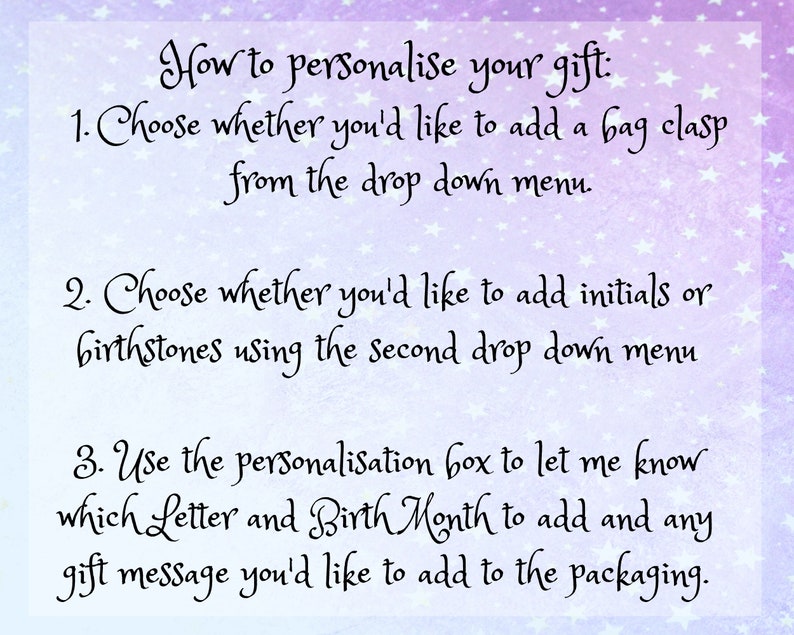 How to personalise your gift:
1. Choose whether you'd like to add a bag clasp
from the drop down menu.
2. Choose whether you'd like to add initials or
birthstones using the second drop down menu
3. Use the personalisation box to let me know
which Letter and Birth Month to add and any
gift message you'd like to add to the packaging.